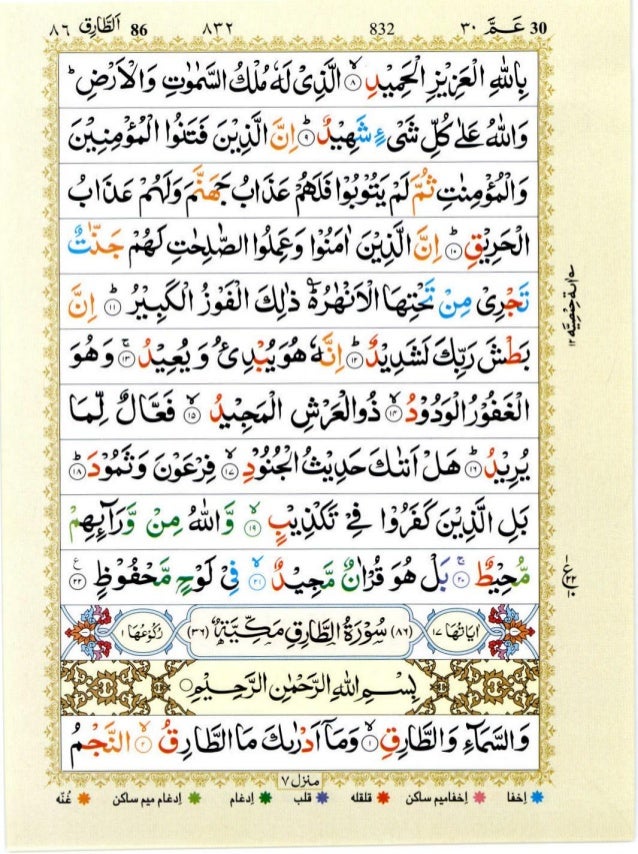 اَلطَّارِق ٨٦ 86 ٨٣٢ 832 عَـمَّ ٣٠ 30
بِاللّٰهِ الْعَزِيْزِ الْحَمِيْدِۙ۝٨ الَّذِيْ لَهٗ مُلْكُ السَّمٰوٰتِ وَالْاَرْضِ ؕ
وَاللّٰهُ عَلٰى كُلِّ شَيْءٍ شَهِيْدٌؕ۝٩ اِنَّ الَّذِيْنَ فَتَنُوا الْمُؤْمِنِيْنَ
وَالْمُؤْمِنٰتِ ثُمَّ لَمْ يَتُوْبُوْا فَلَهُمْ عَذَابُ جَهَنَّمَ وَلَهُمْ عَذَابُ
الْحَرِيْقِؕ۝١٠ اِنَّ الَّذِيْنَ اٰمَنُوْا وَعَمِلُوا الصّٰلِحٰتِ لَهُمْ جَنّٰتٌ
تَجْرِيْ مِنْ تَحْتِهَا الْاَنْهٰرُ ؕ ذٰلِكَ الْفَوْزُ الْكَبِيْرُؕ۝١١ اِنَّ
بَطْشَ رَبِّكَ لَشَدِيْدٌؕ۝١٢ اِنَّهٗ هُوَ يُبْدِئُ وَيُعِيْدُۚ۝١٣ وَهُوَ
الْغَفُوْرُ الْوَدُوْدُۙ۝١٤ ذُو الْعَرْشِ الْمَجِيْدُۙ۝١٥ فَعَّالٌ لِّمَا
يُرِيْدُؕ۝١٦ هَلْ اَتٰىكَ حَدِيْثُ الْجُنُوْدِۙ۝١٧ فِرْعَوْنَ وَثَمُوْدَؕ۝١٨
بَلِ الَّذِيْنَ كَفَرُوْا فِيْ تَكْذِيْبٍۙ۝١٩ وَّاللّٰهُ مِنْ وَّرَآئِهِمْ
مُّحِيْطٌۚ۝٢٠ بَلْ هُوَ قُرْاٰنٌ مَّجِيْدٌۙ۝٢١ فِيْ لَوْحٍ مَّحْفُوْظٍ۝٢٢
اٰيَاتُهَا ١٧ (٨٦) سُوْرَةُ الطَّارِقِ مَكِّيَّةٌ (٣٦) رُكُوْعُهَا ١
بِسْمِ اللّٰهِ الرَّحْمٰنِ الرَّحِيْمِ
وَالسَّمَآءِ وَالطَّارِقِۙ۝١ وَمَآ اَدْرٰىكَ مَا الطَّارِقُۙ۝٢ النَّجْمُ
منزل ٧
اِخفا اِخفامیم ساکن قلقله قلب اِدغام اِدغام میم ساکن غُنّه